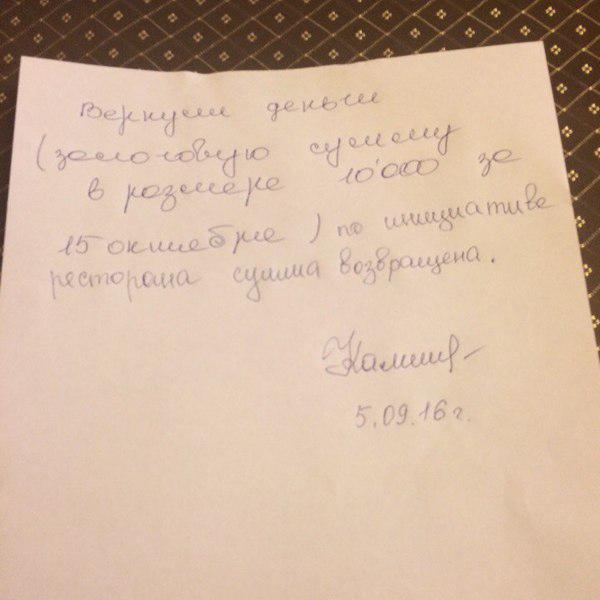 Вернули деньги
(залоговую сумму
в размере 10'000 за
15 октября) по инициативе
ресторана сумма возвращена.
5.09.16 г.